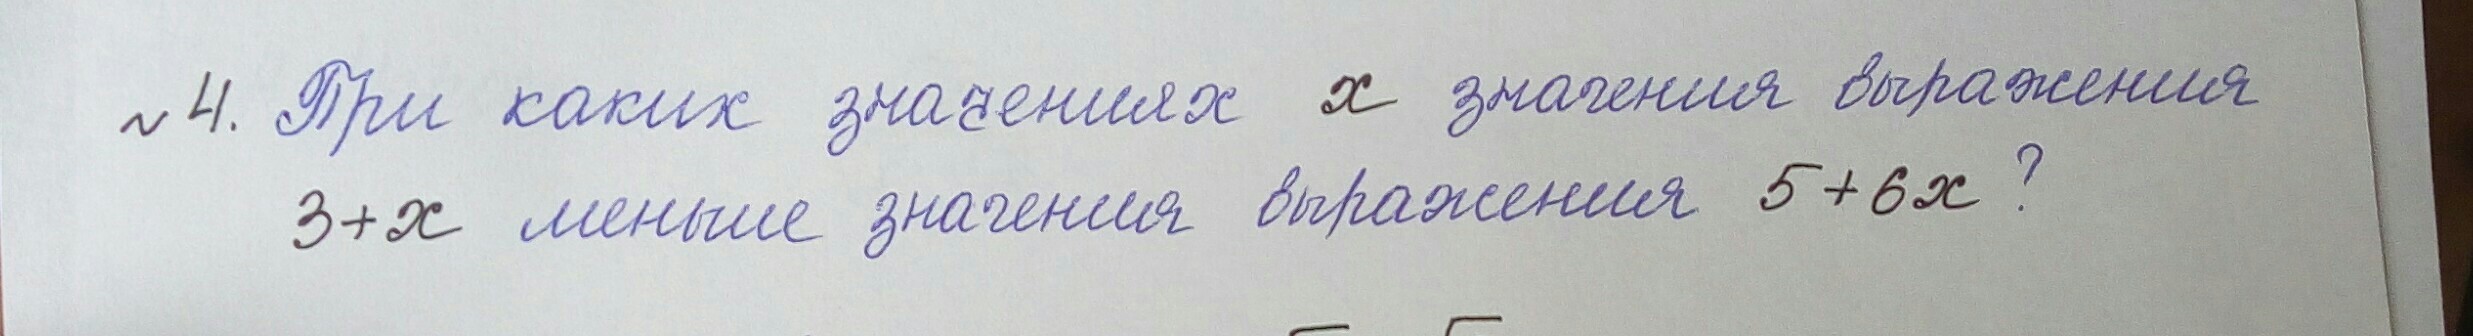 №4. При каких значениях x значения выражения
3+x меньше значения выражения 5+6x?